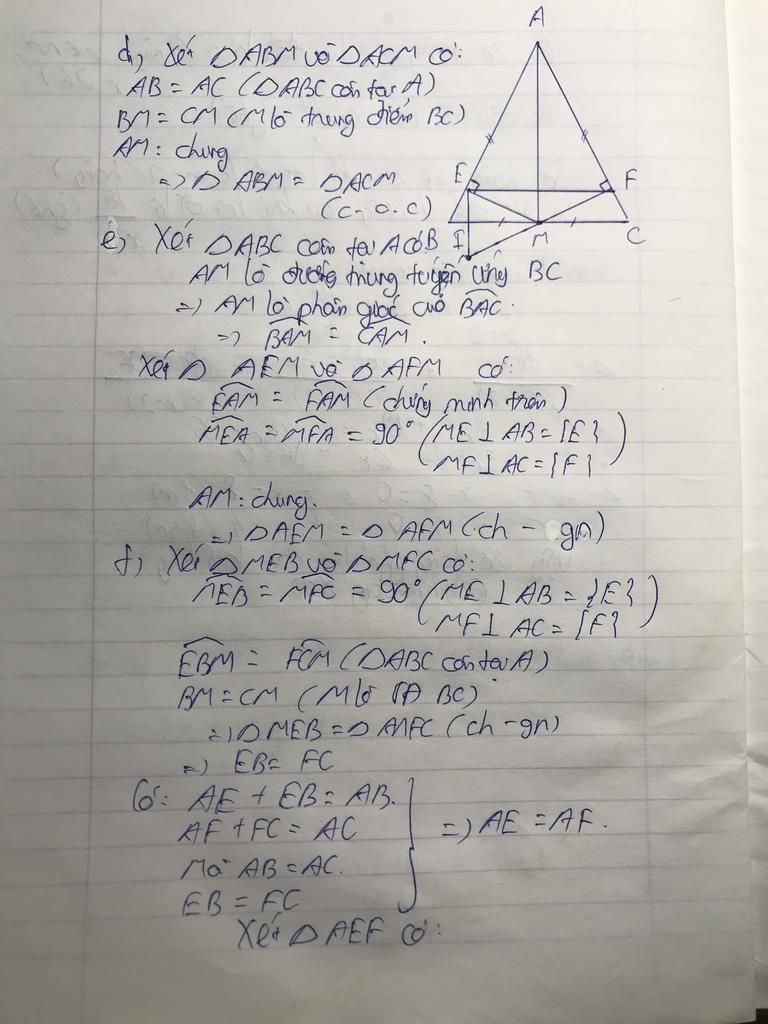 d, Xét Δ ABM và Δ ACM có:
AB = AC (Δ ABC cân tại A)
BM = CM (M là trung điểm BC)
AM: chung
=> Δ ABM = Δ ACM
(c-o.c)
A
E
F
B
I
M
C
e, Xét Δ ABC cân tại A có
AM là đường trung tuyến ứng BC
=> AM là phân giác của BAC.
=> BAM = CAM.
Xét Δ AEM và Δ AFM có:
EAM = FAM (chứng minh trên)
MEA = MFA = 90° (ME ⊥ AB = {E}
MF ⊥ AC = {F})
AM: chung.
=> Δ AEM = Δ AFM (ch - gn)
f, Xét Δ MEB và Δ MFC có:
MEB = MFC = 90° (ME ⊥ AB = {E}
MF ⊥ AC = {F})
EBM = FCM (Δ ABC cân tại A)
BM = CM (M là BC)
=> Δ MEB = Δ MFC (ch - gn)
=> EB = FC
Có: AE + EB = AB.
AF + FC = AC
Mà AB = AC.
EB = FC
=> AE = AF.
Xét Δ AEF có: